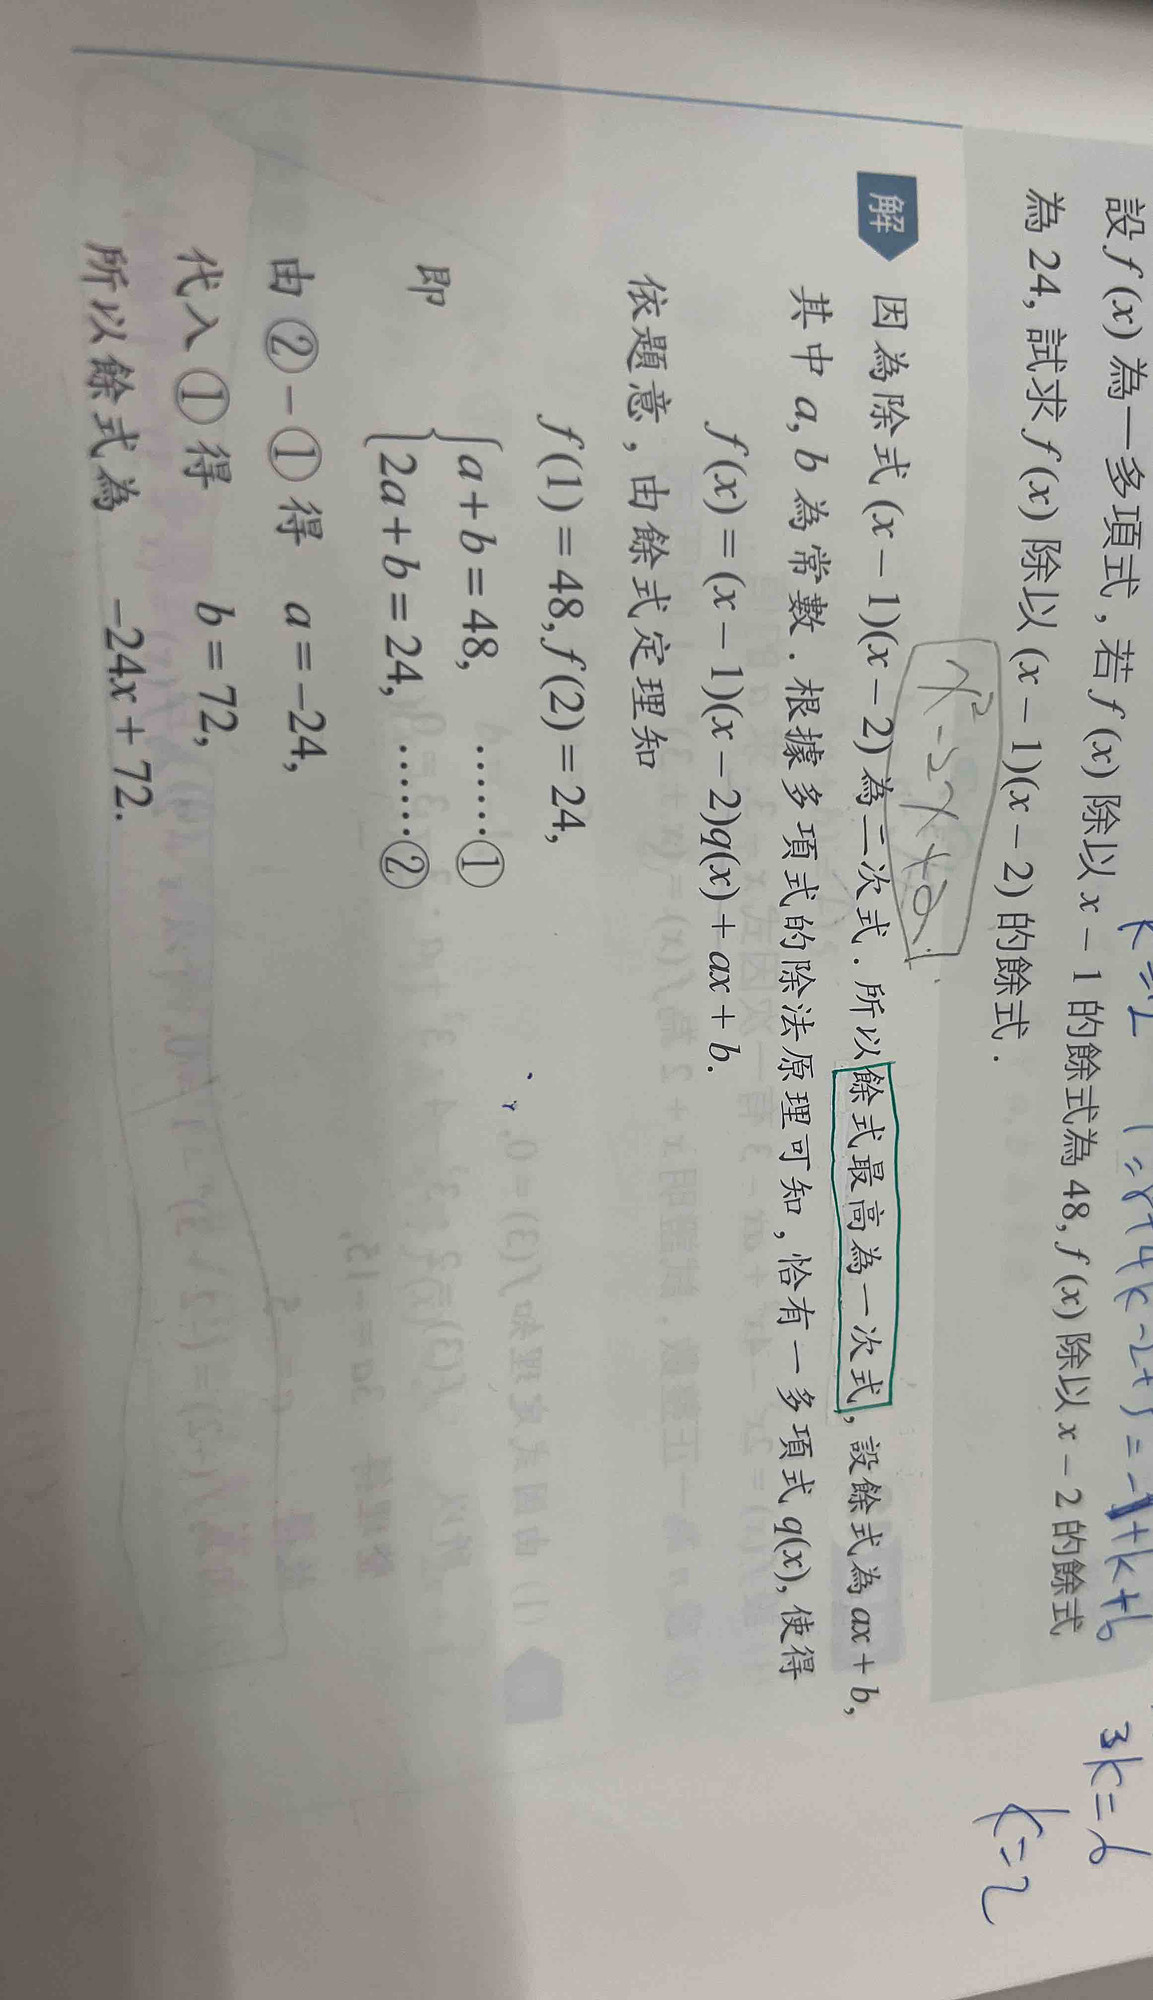 k=2
1=8+4k-2+5=-1+k+b
3k=6
k=2
設 f(x) 為一多項式, 若 f(x) 除以 x-1 的餘式為 48, f(x) 除以 x-2 的餘式
為 24, 試求 f(x) 除以 (x-1)(x-2) 的餘式.
解
因為除式 (x-1)(x-2) 為二次式. 所以餘式最高為一次式, 設餘式為 ax+b,
其中 a, b 為常數. 根據多項式的除法原理可知, 恰有一多項式 q(x), 使得
f(x)=(x-1)(x-2)q(x)+ax+b.
依題意, 由餘式定理知
f(1)=48, f(2)=24,
即 { a+b=48, ……①
2a+b=24, ……②
由 ②-① 得 a=-24,
代入 ① 得 b=72,
所以餘式為 -24x+72.